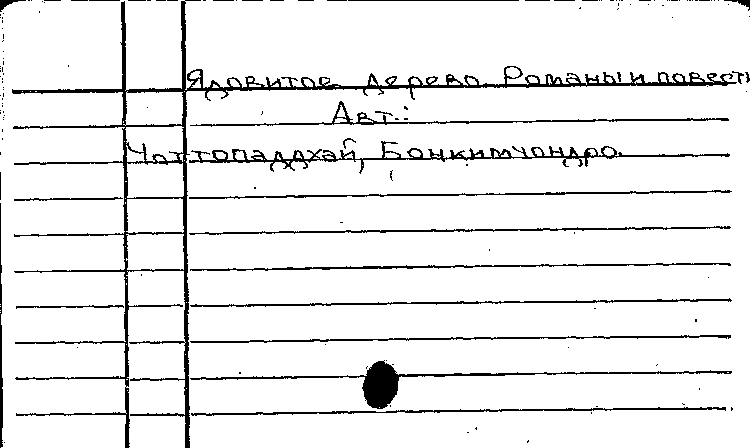 Ядовитое дерево. Романы и повести
Авт.:
Чоттопаддхай, Бонкимчондро.